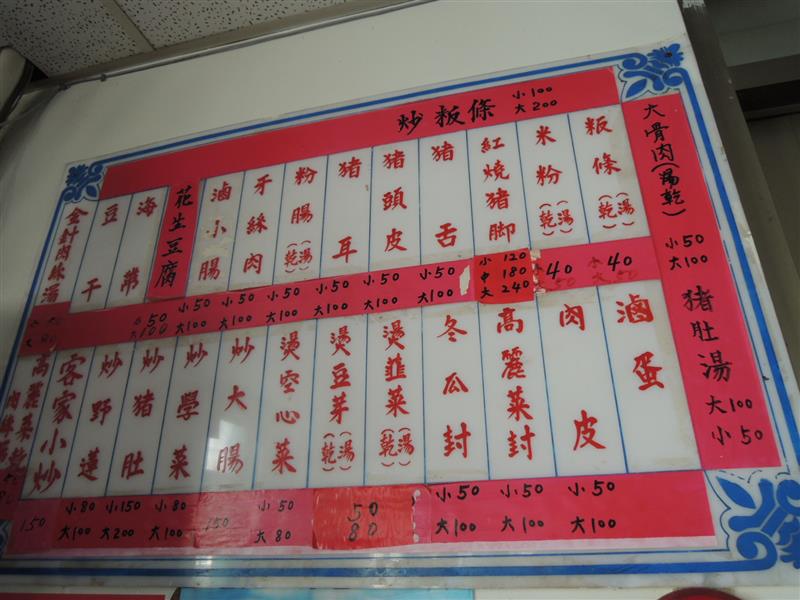 炒粄條 小100 大200
大骨肉(湯乾) 小50 大100
猪肚湯 大100 小50
粄條(湯乾) 小40 大50
米粉(湯乾) 小40
紅燒猪脚 小120 中180 大240
猪舌 小50 大100
猪頭皮 小50 大100
猪耳 小50 大100
粉腸(湯乾) 小50 大100
牙絲肉 小50 大100
滷小腸 小50 大100
花生豆腐 小50 大100
海帶 小50 大100
豆干
金針肉絲湯
滷蛋
肉皮 小50 大100
高麗菜封 小50 大100
冬瓜封 小50 大100
燙韮菜(湯乾)
燙豆芽(湯乾) 50 80
燙空心菜 小50 大80
炒大腸 150
炒學菜 小80 大100
炒猪肚 小150 大200
炒野蓮 小80 大100
客家小炒 150
高麗菜乾肉絲湯